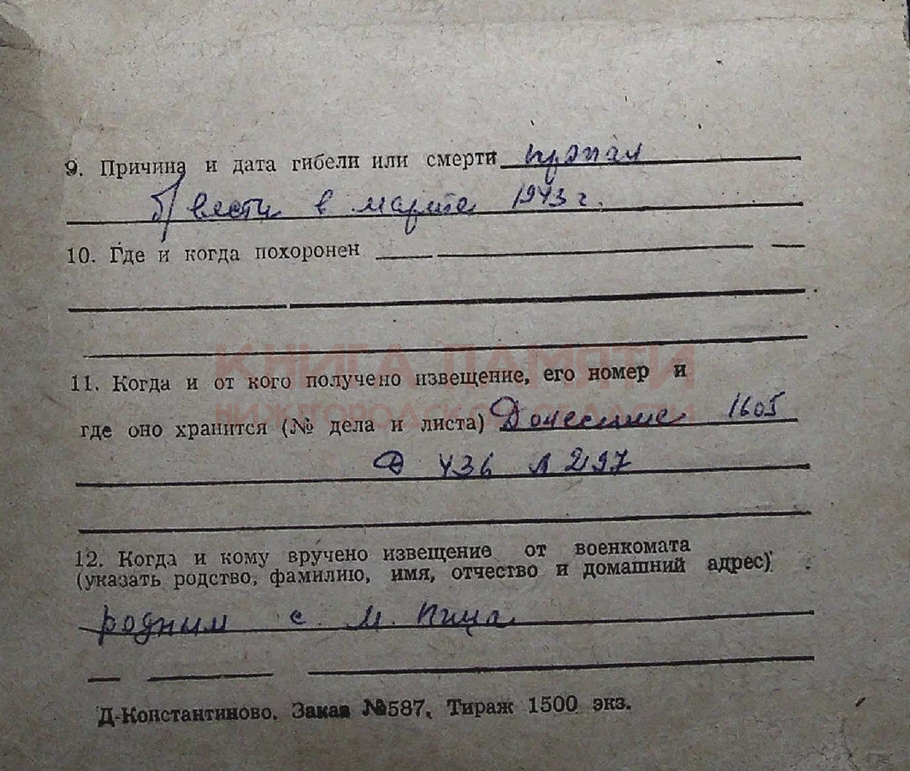 9. Причина и дата гибели или смерти пропал
б/вести в марте 1943 г.
10. Где и когда похоронен
КНИГА ПАМЯТИ
11. Когда и от кого получено извещение, его номер и
НИЖЕГОРОДСКОЙ ОБЛАСТИ
где оно хранится (№ дела и листа) Донесение 1605
Д 436 л 297
12. Когда и кому вручено извещение от военкомата
(указать родство, фамилию, имя, отчество и домашний адрес)
родным с. М. Пица
Д-Константиново. Заказ №587. Тираж 1500 экз.